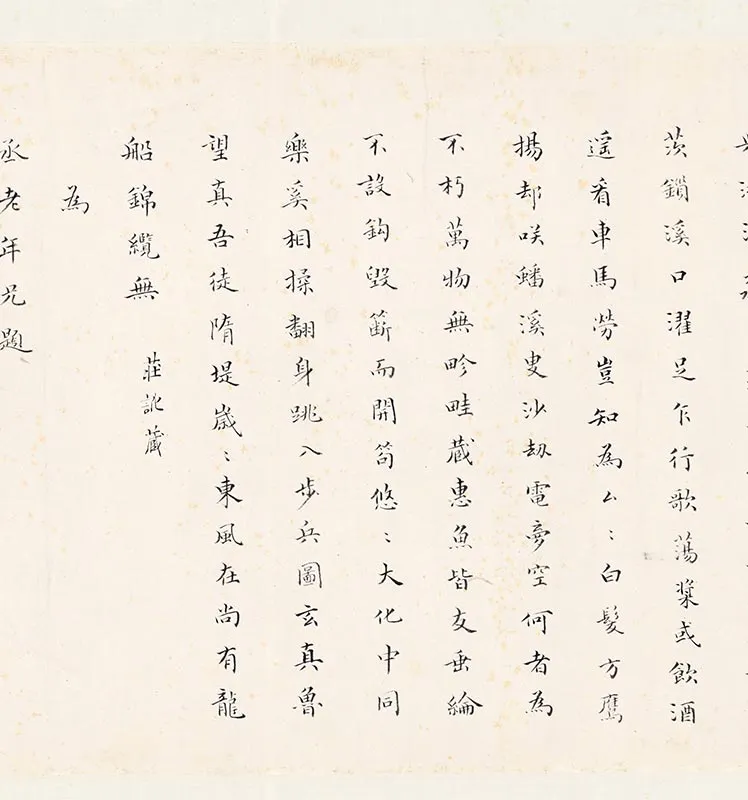 茨鎖溪口濯足乍行歌蕩槳或飲酒
遥看車馬勞豈知為厶〻白髮方鷹
揚却咲蟠溪叟沙劫電夢空何者為
不朽萬物無畛畦蔵惠魚皆友垂綸
不設鈎毀笱而開笱悠〻大化中同
樂奚相操翻身跳入步兵圖玄真魯
望真吾徒隋堤嵗〻東風在尚有龍
船錦纜無
莊訛蔵
為
丞老年兄題